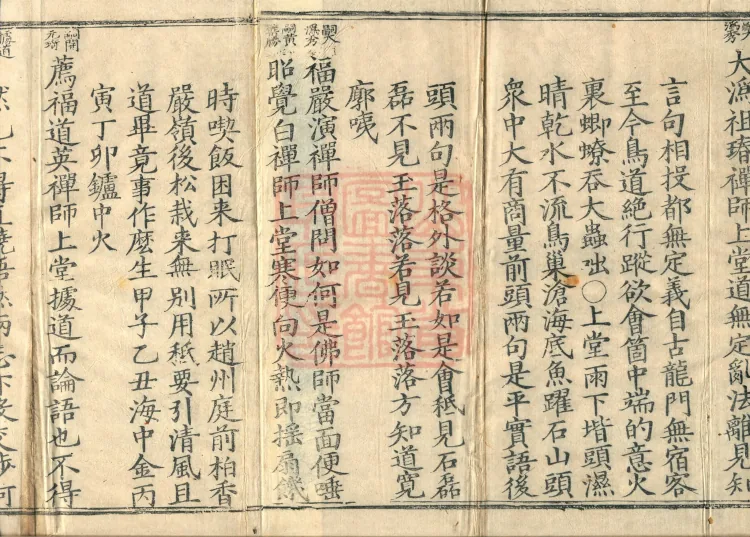 大溈祖瑃禪師上堂道無定亂法離見知
言句相投都無定義自古龍門無宿客
至今鳥道絶行蹤欲會箇中端的意火
裏蝍蟟吞大蟲咄〇上堂雨下堦頭濕
晴乾水不流鳥巢滄海底魚躍石山頭
衆中大有商量前頭兩句是平實語後
頭兩句是格外談若如是會秪見石磊
磊不見玉落落若見玉落落方知道寬
廓咦
福嚴演禪師僧問如何是佛師當面便唾
昭覺白禪師上堂寒便向火熱即搖扇饑
時喫飯困来打眠所以趙州庭前柏香
嚴嶺後松栽来無別用秪要引清風且
道畢竟事作麽生甲子乙丑海中金丙
寅丁卯鑪中火
薦福道英禪師上堂據道而論語也不得